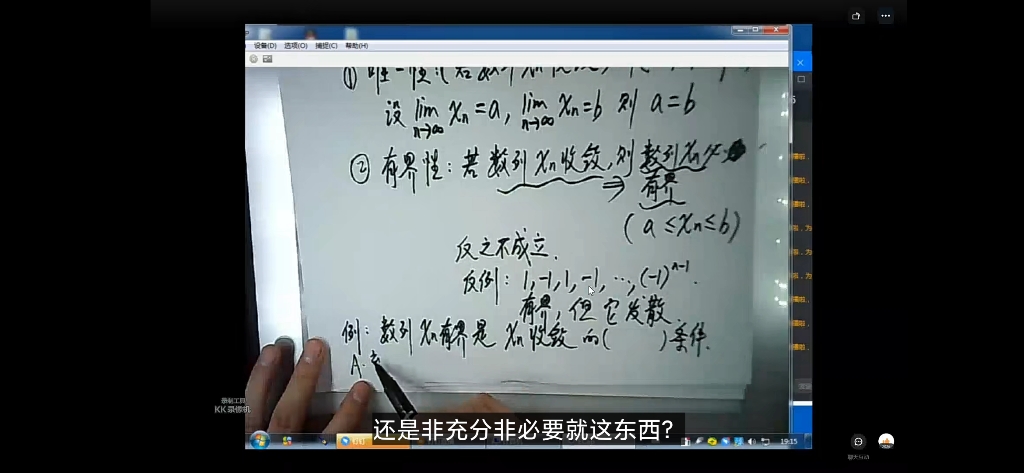 设备(D) 选项(O) 捕捉(C) 帮助(H)
① 唯一性:(若数列 xₙ 收敛,
设 lim xₙ=a, lim xₙ=b 则 a=b
n→∞ n→∞
② 有界性:若数列 xₙ 收敛,则 数列 xₙ 必
⇒ 有界
(a≤xₙ≤b)
反之不成立.
反例: 1,-1,1,-1,…,(-1)ⁿ⁻¹.
有界,但它发散.
例:数列 xₙ 有界是 xₙ 收敛的( )条件.
A:
录制工具
KK录像机
还是非充分非必要就这东西?
19:15